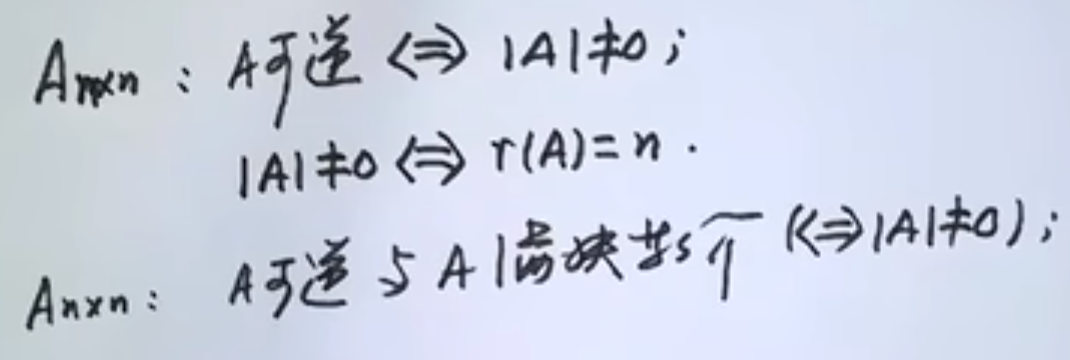 Aₙₓₙ : A可逆 ⇔ |A|≠0 ;
|A|≠0 ⇔ r(A)=n .
Aₙₓₙ : A可逆与A满秩 (⇔|A|≠0) ;